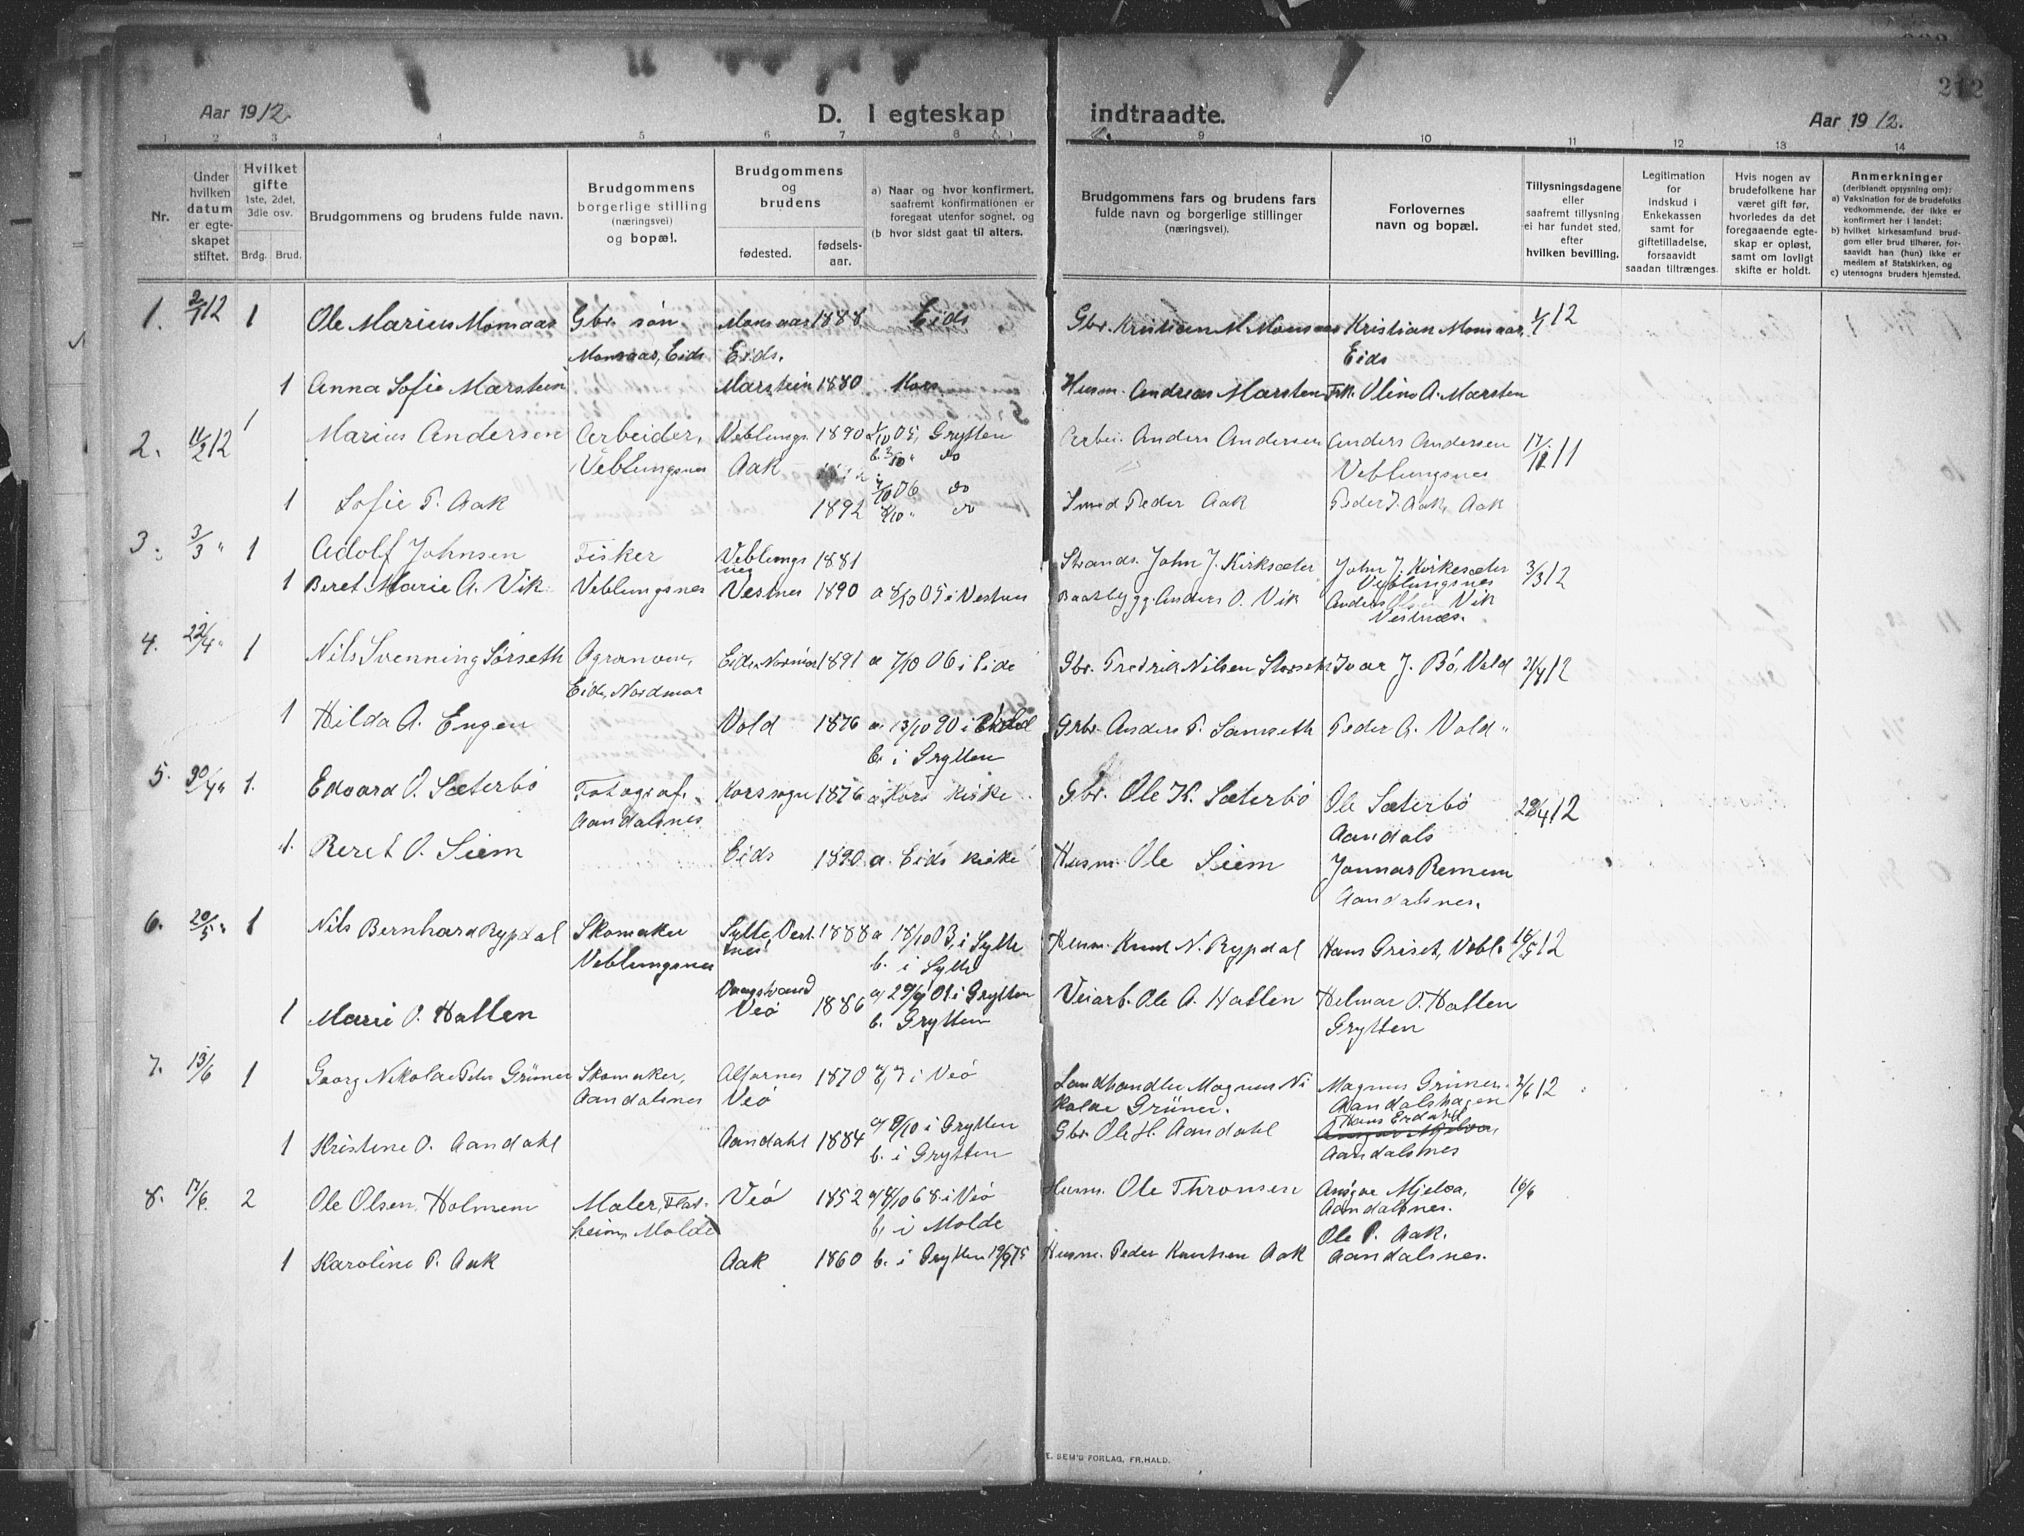 212
Aar 1912.
D. I egteskap indtraadte.
Aar 1912.
1 2 3 4 5 6 7 8 9 10 11 12 13 14
Nr.
Under hvilken datum er egteskapet stiftet.
Hvilket gifte 1ste, 2det, 3die osv.
Brdg. Brud.
Brudgommens og brudens fulde navn.
Brudgommens borgerlige stilling (næringsvei) og bopæl.
Brudgommens og brudens
fødested. fødsels-aar.
a) Naar og hvor konfirmert, saafremt konfirmationen er foregaat utenfor sognet, og
(b hvor sidst gaat til alters.
Brudgommens fars og brudens fars fulde navn og borgerlige stillinger (næringsvei).
Forlovernes navn og bopæl.
Tillysningsdagene eller saafremt tillysning ei har fundet sted, efter hvilken bevilling.
Legitimation for indskud i Enkekassen samt for giftetilladelse, forsaavidt saadan tiltrænges.
Hvis nogen av brudefolkene har været gift før, hvorledes da det foregaaende egteskap er opløst, samt om lovligt skifte er holdt.
Anmerkninger (deriblandt opjysning om):
a) Vaksination for de brudefolks vedkommende, der ikke er konfirmert her i landet;
b) hvilket kirkesamfund brudgom eller brud tilhører, forsaavidt han (hun) ikke er medlem af Statskirken, og
c) utensogns bruders hjemsted.
1. 2/1 12 1 Ole Marius Monsaas Gbr. søn Monsaas 1888 Eids Gbr. Kristian M. Monsaas Kristian Monsaas, 1/1 12
Monsaas, Eids Eids. Eids
1 Anna Sofie Marstein Marstein 1880 Kors Husm. Andreas Marsten Frk. Olina A. Marsten
2. 11/2 12 1 Marius Andersen Arbeider, Veblungs. 1890 1/10 05, Grytten Arbei. Anders Andersen Anders Andersen 17/12 11
Veblungsnes Aak b. 3/10 " do Veblungsnes
1 Sofie P. Aak 1892 /10 06 do Smed Peder Aak Peder J. Aak, Aak
8/10 " do
3. 3/3 " 1 Adolf Johnsen Fisker Veblungsnes 1881 Strands. John J. Kirksæter John J. Kirkesæter 3/3 12
Veblungsnes
1 Beret Marie A. Vik Veblungsnes Vestnes 1890 a 8/10 05 i Vestnes Baatbygg. Anders O. Vik Anders Olsen Vik
Vestnæs.
4. 22/4 " 1 Nils Svenning Sørseth Agronom, Eide, Nordmør 1891 a 7/10 06 i Eide Gbr. Fredrik Nilsen Storseth Ivar J. Bö, Vold 21/4 12
Eide, Nordmør
1 Hilda A. Engen Vold 1876 a. 13/10 90 i Grbr. Anders P. Samseth Peder A. Vold "
b. i Grytten
5. 30/4 " 1. Edvard O. Sæterbø Fotograf, Korssogn 1876 a Kors kirke Gbr. Ole K. Sæterbø Ole Sæterbø 28/4 12
Aandalsnes Aandals
1. Beret O. Siem Eids 1890 a. Eids kirke Husm. Ole Siem Jonnas Remem
Aandalsnes.
6. 20/5 " 1 Nils Bernhard Rypdal Skomaker Sylte, Vestnes 1888 a 18/10 03, i Sylte Husm. Knut N. Rypdal Hans Griset, Vebl. 16/5 12
Veblungsnes b. i Sylte
1 Marie O. Hatlen Vaagstrand Veö 1886 a) 29/9 01 i Grytten Veiarb. Ole A. Hatlen Helmar O. Hatlen
b. Grytten Grytten
7. 13/6 1 Georg Nikolai Peter Grüner Skomaker, Alfarnes 1870 a, b, i Veö Landhandler Magnus Ni Magnus Grüner. 2/6 12
Aandalsnes Veö kolai Grüner. Aandalshagen
1 Kristine O. Aandahl Aandahl 1884 a) 9/10 i Grytten Gbr. Ole H. Aandahl Hans Erdahl
b. i Grytten Ansgar Mjelva, Aandalsnes
8. 17/6. 2 Ole Olsen Holmem Maler, Flat- Veö 1852 a) 4/10 68 i Veö Husm. Ole Thronsen Ansgar Mjelva, 16/6
heim, Molde b, i Molde Aandalsnes.
1 Karoline P. Aak Aak 1860 b. i Grytten 19/9 75 Husm. Peder Knutsen Aak Ole P. Aak.
Aandalsnes.
E. SEM'S FORLAG, FR.HALD.